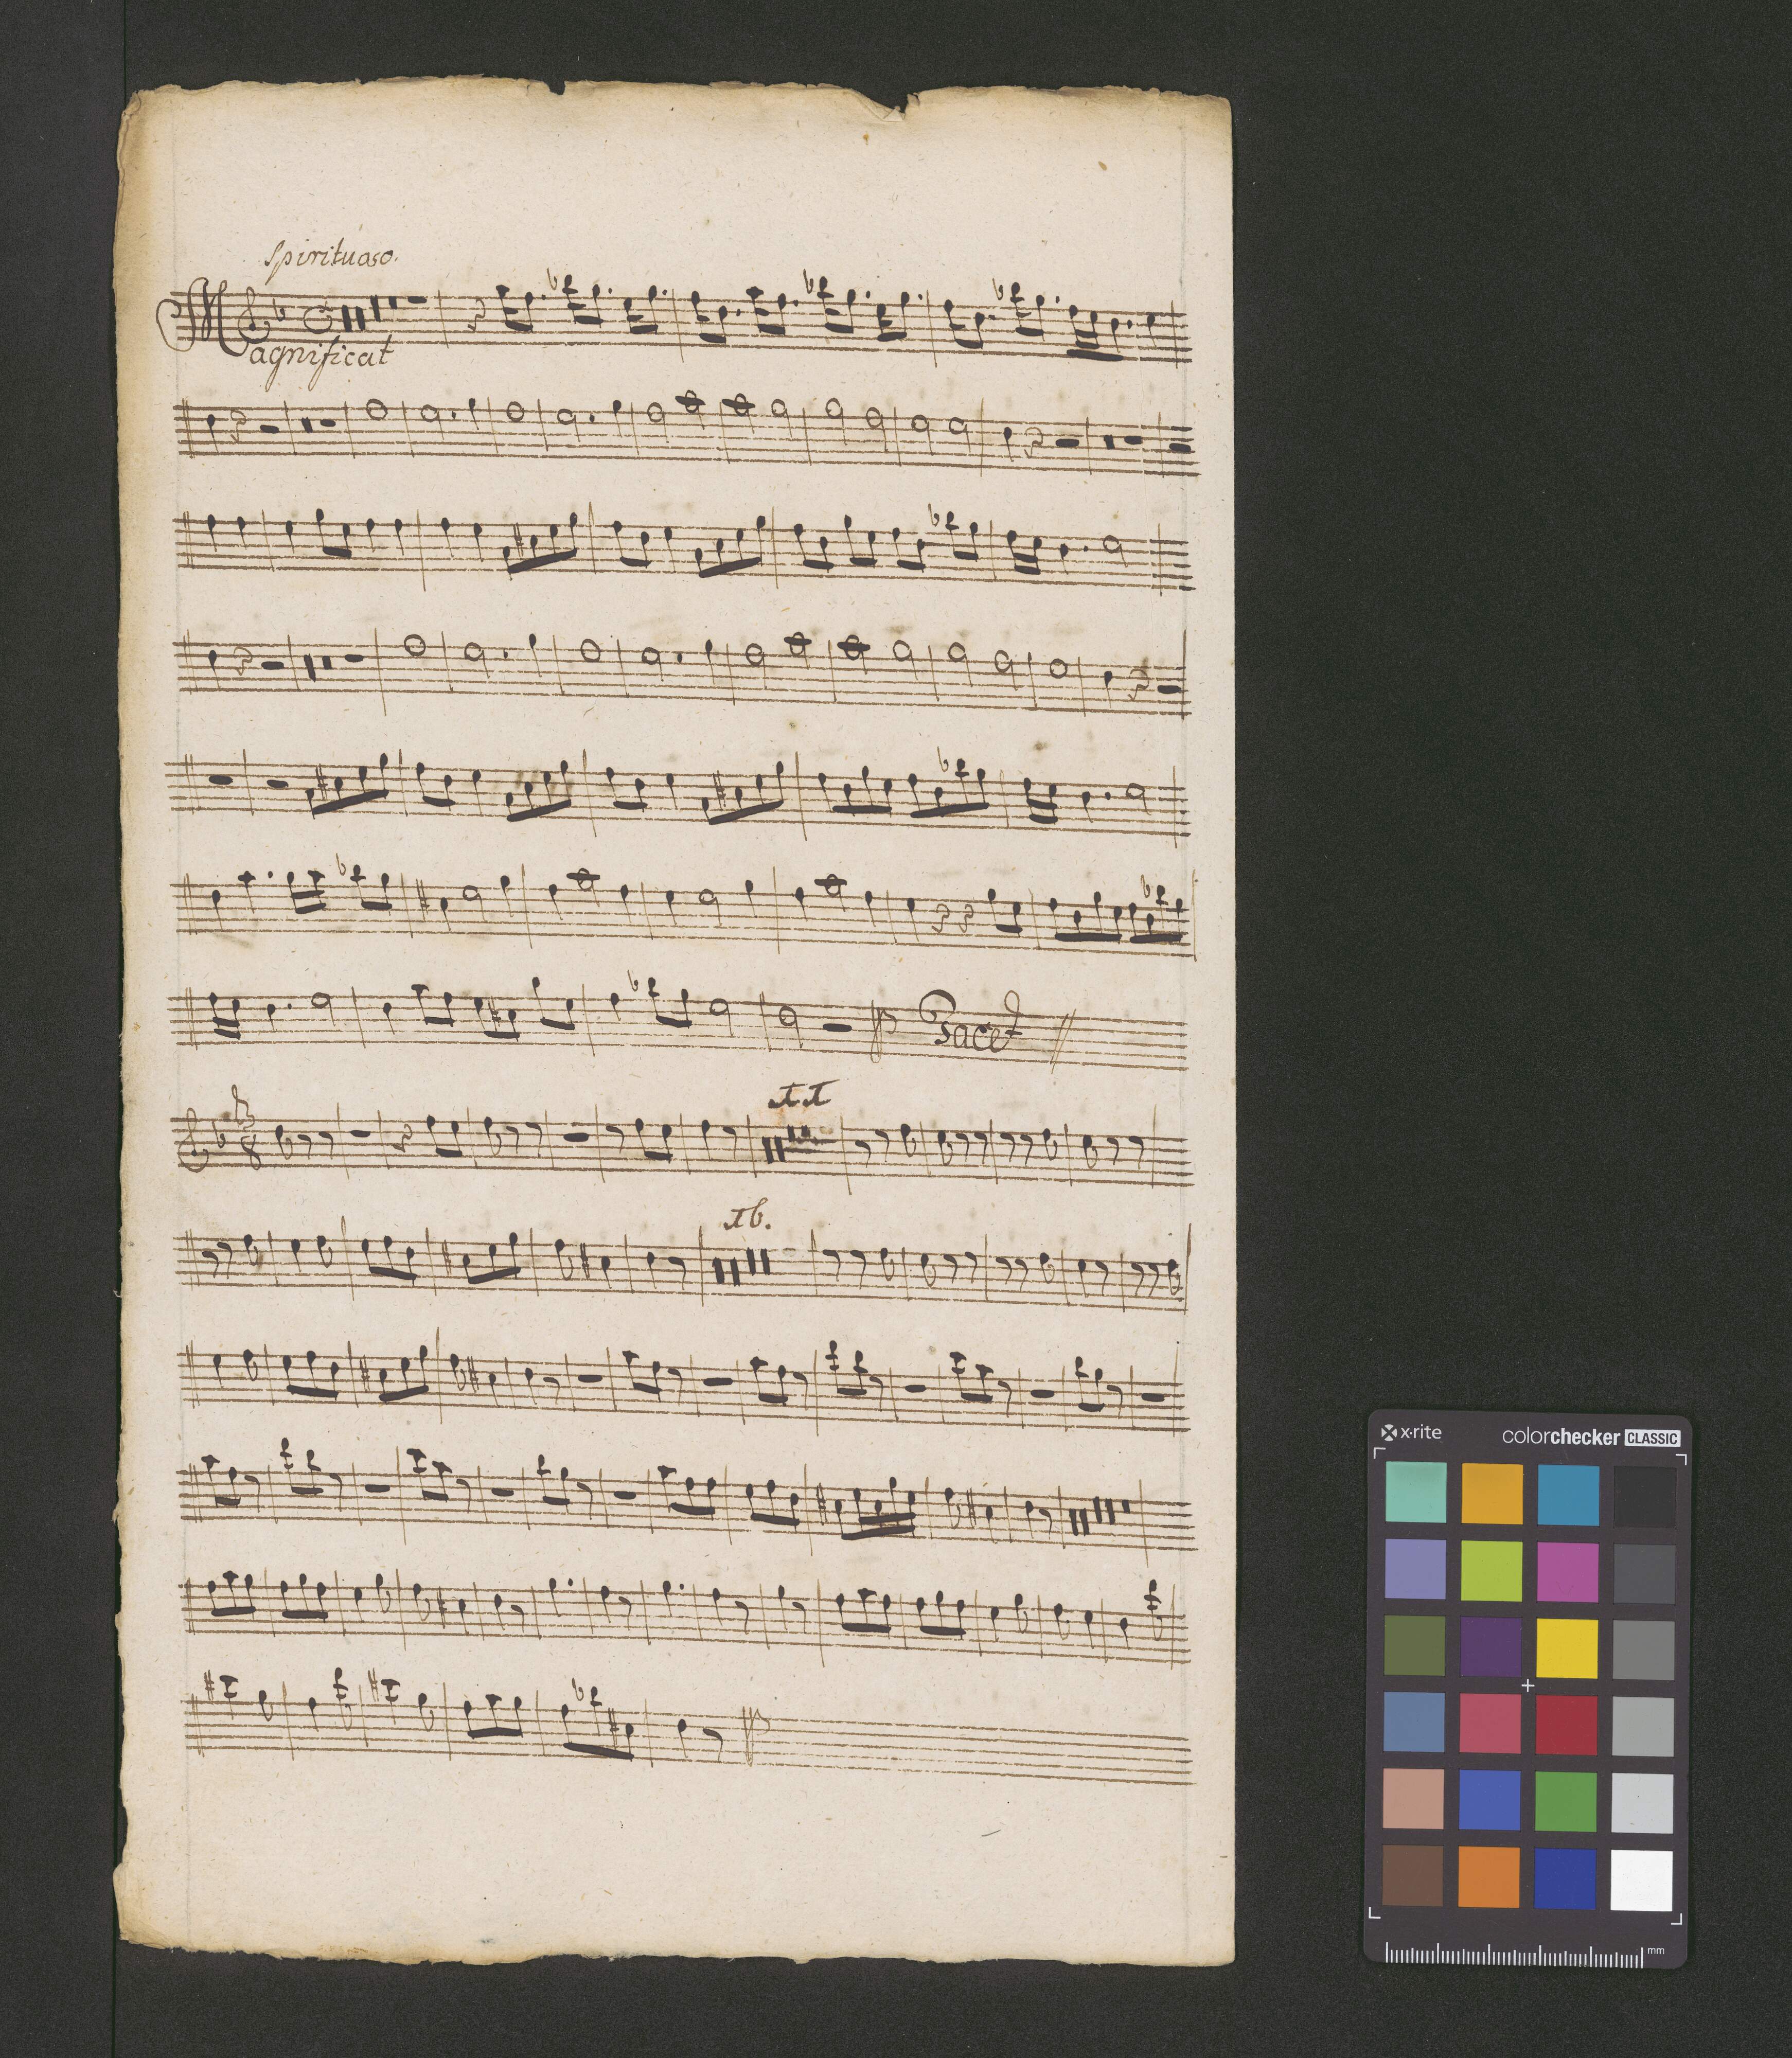 Spirituoso.
Magnificat
Tacet
x-rite
colorchecker CLASSIC
mm